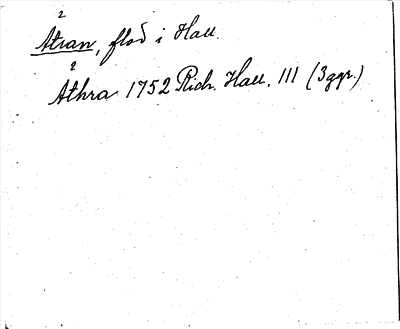 Ätran, flod i Hall.
Åthra 1752 Rich. Hall. 111 (3 ggr.)